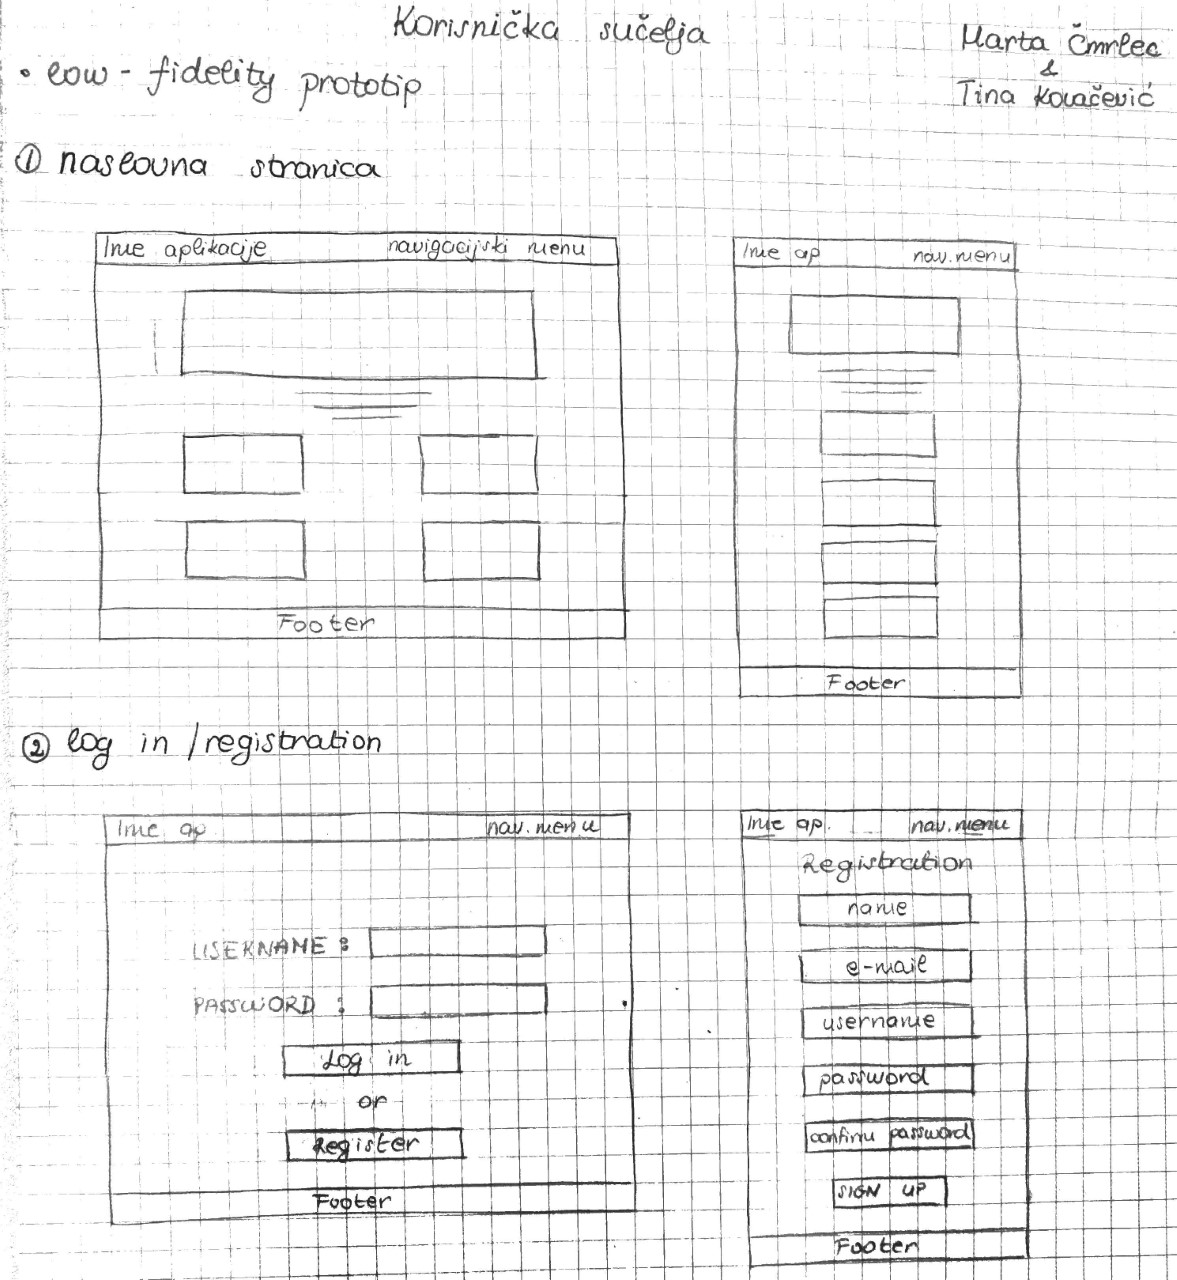 Korisnička sučelja
Marta Čmrlec
&
Tina Kovačević
• low - fidelity prototip
① naslovna stranica
Ime aplikacije navigacijski menu
Footer
Ime ap nav.menu
Footer
② log in / registration
Ime ap nav.menu
USERNAME :
PASSWORD :
Log in
or
Register
Footer
Ime ap. nav.menu
Registration
name
e-mail
username
password
confirm password
SIGN UP
Footer